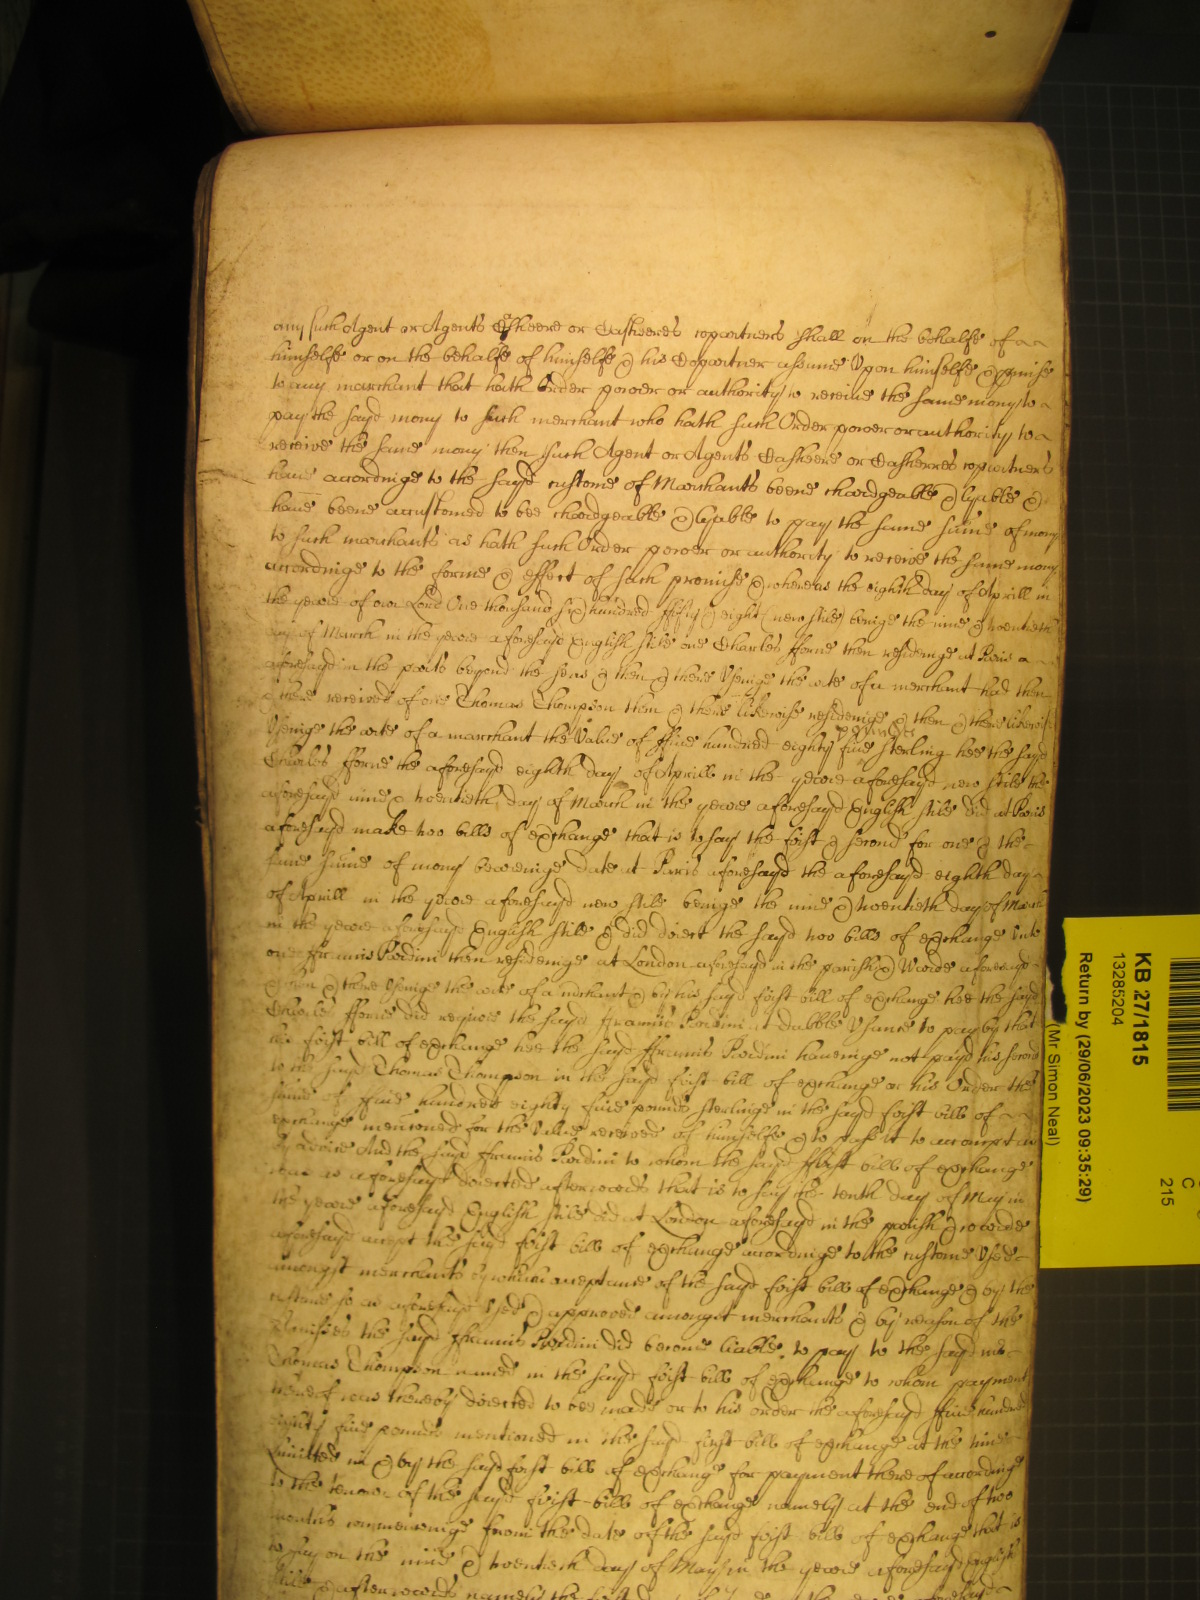 any such Agent or Agents Casheere or Casheeres copartners shall on the behalfe of
himselfe or on the behalfe of himselfe & his Copartner assume Upon himselfe & promise
to any marchant that hath Order power or authority to receive the same mony to
pay the sayd mony to such merchant who hath such Order power or authority to
receive the same mony then such Agent or Agents Casheere or Casheeres copartners
have accordinge to the sayd custome of Marchants beene chardgeable & lyable &
have beene accustomed to bee chardgeable & lyable to pay the same sume of mony
to such marchants as hath such Order power or authority to receive the same mony
accordinge to the forme & effect of such promise & whereas the eighth day of Aprill in
the yeare of our Lord One thousand six hundred fifty & eight (new stile) beinge the nine & twentieth
day of March in the yeare aforesayd English stile one Charles fforne then residenge at Paris
aforesayd in the parts beyond the seas & then & there Usenge the arte of a merchant had then
& there received of one Thomas Thompson then & there likewise residenige & then & there likewise
Usenge the arte of a marchant the Value of ffive hundred eighty five pounds sterling hee the sayd
Charles fforne the aforesayd eighth day of Aprill in the yeare aforesayd new stile the
aforesayd nine & twentieth day of March in the yeare aforesayd English stile did at Paris
aforesayd make two bills of exchange that is to say the first & second for one & the
same sume of mony beareinge date at Paris aforesayd the aforesayd eighth day
of Aprill in the yeare aforesayd new stile beinge the nine & twentieth day of March
in the yeare aforesayd English stile & did direct the sayd two bills of exchange Unto
one ffrancis Pardini then residenge at London aforesayd in the parish & Warde aforesayd
& then & there Usenge the arte of a merchant & by his sayd first bill of exchange hee the sayd
Charles fforne did require the sayd ffrancis Pardini at dubble Usance to pay by that
his first bill of exchange hee the sayd ffrancis Pardini haveinge not payd his second
to the sayd Thomas Thompson in the sayd first bill of exchange or his Order the
sume of five hundred eighty five pounds sterlinge in the sayd first bill of
exchange mencioned for the Value received of himselfe & to passe it to accompt as
by advice And the sayd ffrancis Pardini to whom the sayd first bill of exchange
was as aforesayd directed afterwards that is to say the tenth day of May in
the yeare aforesayd English stile did at London aforesayd in the parish & warde
aforesayd accept the sayd first bill of exchange accordinge to the custome Used
amongst merchants by which acceptance of the sayd first bill of exchange & by the
custome so as aforesayd Used & approved amongst merchants & by reason of the
Premises the sayd ffrancis Pardini did become liable to pay to the sayd
Thomas Thompson named in the sayd first bill of exchange to whom payment
thereof was thereby directed to bee made or to his order the aforesayd ffive hundred
eighty five pounds mentioned in the sayd first bill of exchange at the time
limitted in & by the sayd first bill of exchange for payment there of accordinge
to the tenour of the sayd first bill of exchange namely at the end of two
months commencinge from the date of the sayd first bill of exchange that is
to say on the nine & twentieth day of May in the yeare aforesayd English
stile & afterwards namely the first
KB 27/1815
13285204
Return by (29/06/2023 09:35:29)
(Mr Simon Neal)
C
215